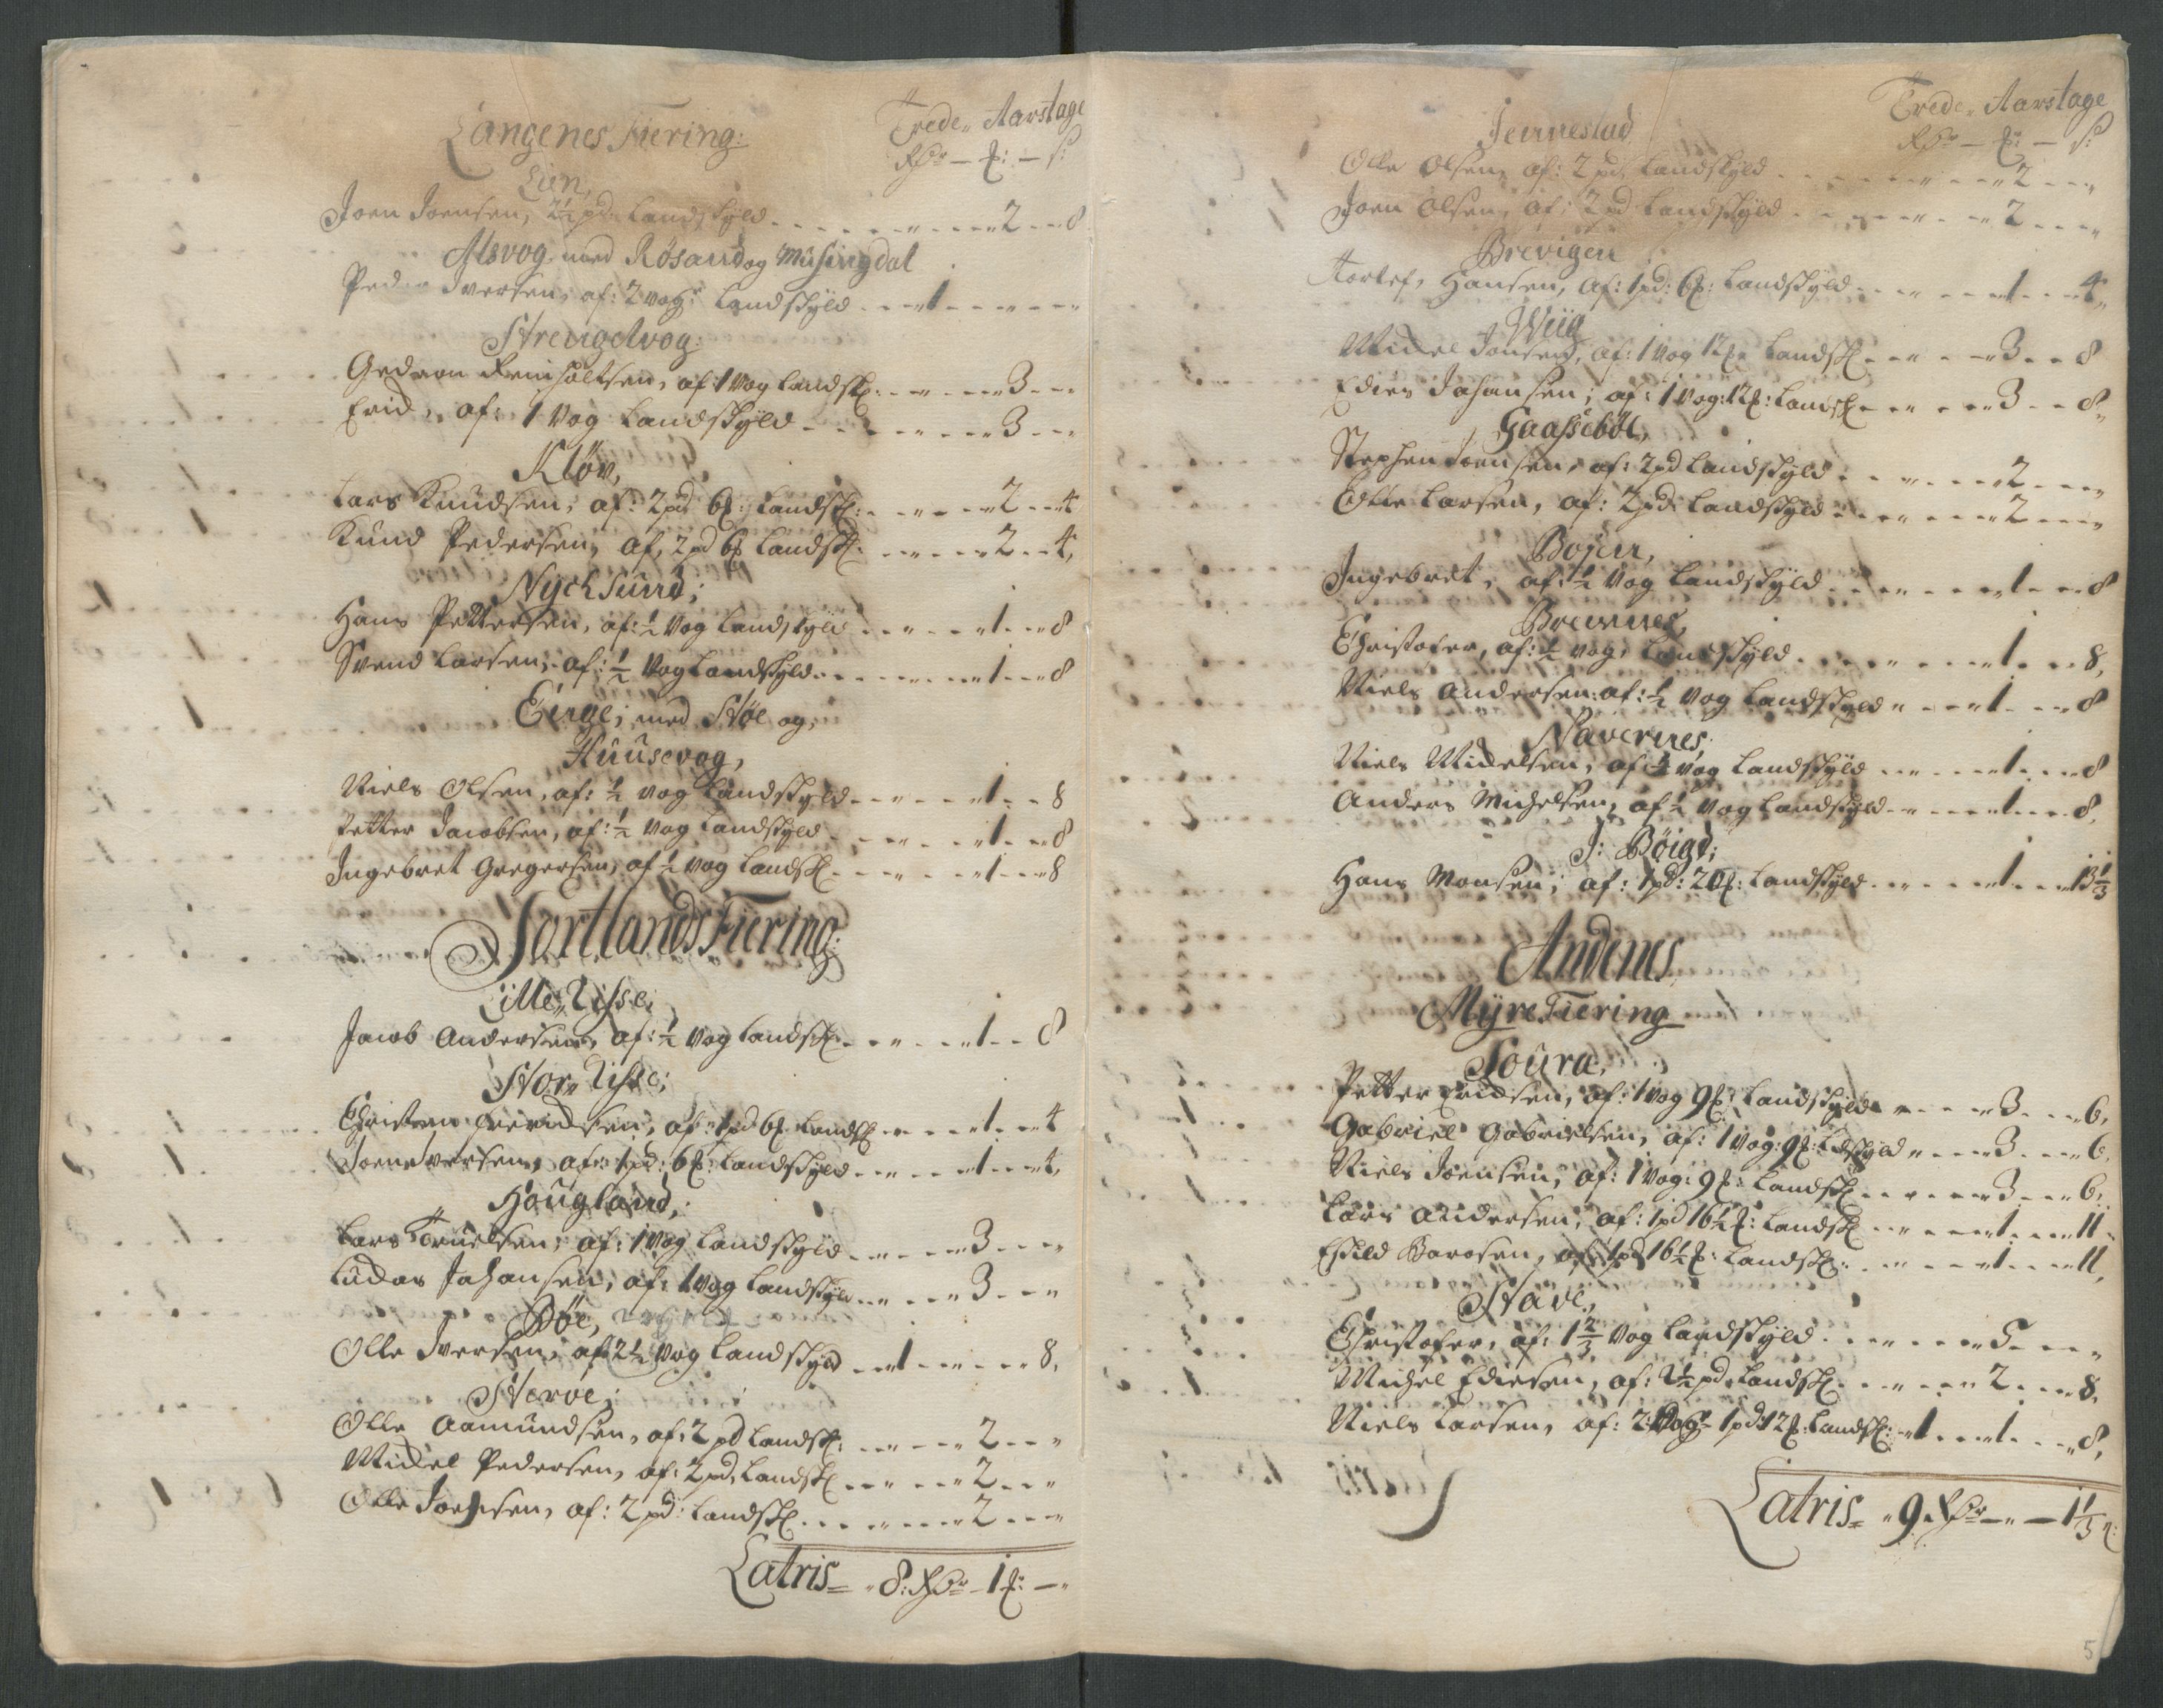 Langenes Fiering:
Trede„ Aarstage
Rdr — ₰: — s:
Lien,
Joen Joensen, 2½ pd: Landskyld 2 8
Alsvog med Røsand og Musingdal
Peder Iversen, af: 2 vog: Landskyld 1
Strengelvog:
Gedeon Reinholtsen, af 1 Vog Landsk: 3
Erich, af: 1 Vog Landskyld 3
Kløv,
Lars Knudsen, af: 2 pd 6 ₰: Landsk: 2 4
Knud Pedersen, af, 2 pd 6 ₰ Landsk: 2 4,
Nychsund;
Hans Pettersen, af: ½ Vog Landskyld 1 8
Svend Larsen, af: ½ Vog Landskyld 1 8
Einge; med Støe og,
Huusevog,
Niels Olsen, af: ½ vog Landskyld 1 8
Petter Jacobsen, af: ½ Vog Landskyld 1 8
Ingebret Gregersen, af ½ vog Landsk: 1 8
Sortlands Fiering:
Lille„ Risse;
Jacob Andersen, af: ½ Vog Landsk: 1 8
Stor„ Risse;
Christen Hendrichsen, af: 1 pd 6 ₰ Landsk 1 4
Joen Iversen, af: 1 pd: 6 ₰: Landskyld 1 4,
Hougland,
Lars Truelsen, af: 1 Vog Landskyld 3
Ludas Johansen, af: 1 Vog Landskyld 3
Bøe,
Olle Iversen, af 2½ Vog Landskyld 1 8,
Sterve;
Olle Aamundsen, af: 2 pd Landsk: 2
Michel Pedersen, af: 2 pd, Landsk 2
Olle Joensen, af: 2 pd: Landsk 2
Latris = 8: Rdr - 1 ₰: —
Trede„ Aarstage
Rdr — ₰: — s:
Jennestad
Olle Olsen, af: 2 pd, Landskyld 2
Joen Olsen, af: 2 pd Landskyld 2
Brevigen
Torlef, Hansen, af: 1 pd: 6 ₰: Landskyld 1 4
Wiig
Michel Jonsen, af: 1 Vog 12 ₰ Landsk 3 8
Edies Johansen; af: 1 Vog: 12 ₰: Landsk 3 8
Gaassebøl,
Stephen Joensen, af: 2 pd Landskyld 2
Olle Larsen, af: 2 pd: Landskyld 2
Bojen,
Ingebret, af: ½ Vog Landskyld 1 8
Bremnes,
Christofer, af: ½ vog: Landskyld 1 8,
Niels Andersen: af: ½ Vog Landskyld 1 8
Navernes;
Niels Michelsen, af ½ Vog Landskyld 1 8
Anders Michelsen, af ½ Vog Landskyld 1 8,
I: Bøigd;
Hans Monsen; af: 1 pd: 20 ₰: Landskyld 1 13⅓
Andenes
Myre Fiering
Soura,
Petter Erichsen, af: 1 Vog 9 ₰: Landskyld 3 6,
Gabriel Gabrielsen, af: 1 Vog: 9 ₰: Ldskyld 3 6,
Niels Joensen, af: 1 Vog: 9 ₰: Landsk 3 6,
Lars Andersen, af: 1 pd 16½ ₰: Landsk 1 11
Eschild Barosen, af: 1 pd 16½ ₰: Landsk: 1 11,
Stave,
Christofer, af: 1⅔ Vog Landskyld 5
Michel Ediesen, af: 2½ pd, Landsk 2 8,
Niels Larsen, af: 2 Vog 1 pd 12 ₰: Landsk: 1 1 8,
Latris = 9 Rdr — „ — 1⅓ s:
5